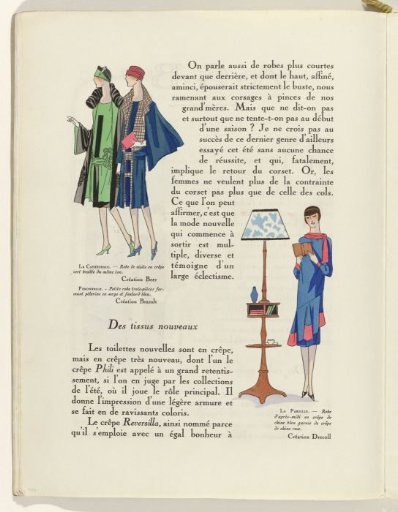 On parle aussi de robes plus courtes
devant que derrière, et dont le haut, affiné,
aminci, épouserait strictement le buste, nous
ramenant aux corsages à pinces de nos
grand'mères. Mais que ne dit-on pas
et surtout que ne tente-t-on pas au début
d'une saison ? Je ne crois pas au
succès de ce dernier genre d'ailleurs
essayé cet été sans aucune chance
de réussite, et qui, fatalement,
implique le retour du corset. Or, les
femmes ne veulent plus de la contrainte
du corset pas plus que de celle des cols.
Ce que l'on peut
affirmer, c'est que
la mode nouvelle
qui commence à
sortir est mul-
tiple, diverse et
témoigne d'un
large éclectisme.
Robe de visite en crêpe
vert
du même ton.
Création Beer
Petite robe trois-pièces for-
mant pèlerine en serge et foulard bleu.
Création Brandt
Des tissus nouveaux
Les toilettes nouvelles sont en crêpe,
mais en crêpe très nouveau, dont l'un le
crêpe Phili est appelé à un grand retentis-
sement, si l'on en juge par les collections
de l'été, où il joue le rôle principal. Il
donne l'impression d'une légère armure et
se fait en de ravissants coloris.
Le crêpe Reversilla, ainsi nommé parce
qu'il s'emploie avec un égal bonheur à
Robe
d'après-midi en crêpe de
chine bleu garnie de crêpe
de chine rose.
Création Drecoll